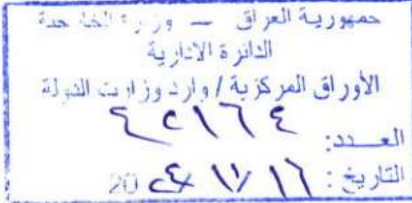 جمهورية العراق — وزارة الخارجية
الدائرة الادارية
الأوراق المركزية / وارد وزارات الدولة
العدد: ٤٢١٦٤
التاريخ: ١٦ / ١١ / 20٢٤